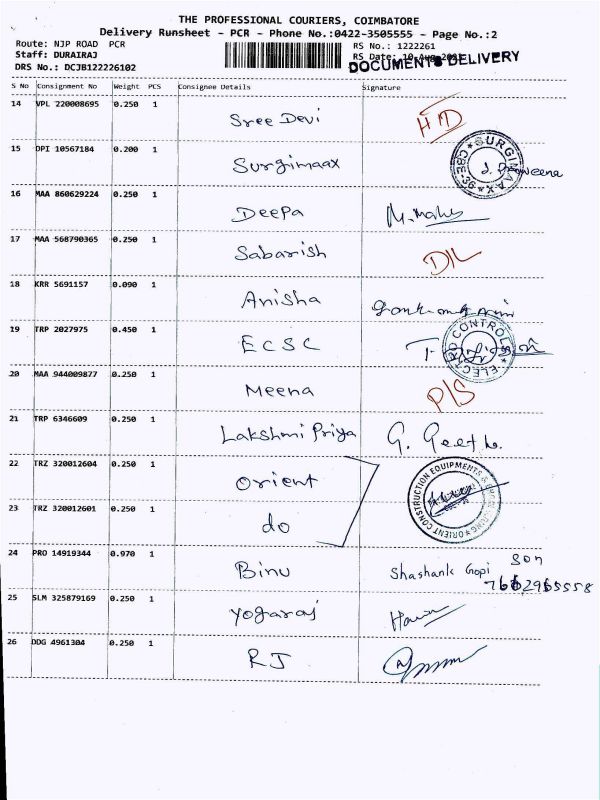 THE PROFESSIONAL COURIERS, COIMBATORE
Delivery Runsheet - PCR - Phone No.:0422-3505555 - Page No.:2
Route: NJP ROAD PCR
RS No.: 1222261
Staff: DURAIRAJ
RS Date: 10 Aug
DOCUMENTS DELIVERY
DRS No.: DCJB122226102
S No Consignment No Weight PCS Consignee Details Signature
14 VPL 220008695 0.250 1 Sree Devi HD
15 DPI 10567184 0.200 1 Surgimaax
SURGIMAAX CBE-36
16 MAA 860629224 0.250 1 Deepa
17 MAA 568790365 0.250 1 Sabarish D/L
18 KRR 5691157 0.090 1 Anisha
19 TRP 2027975 0.450 1 ECSC
ELECTRO CONTROLS
20 MAA 944009877 0.250 1 Meena P/S
21 TRP 6346609 0.250 1 Lakshmi Priya G. Geetha
22 TRZ 320012604 0.250 1 Orient
ORIENT CONSTRUCTION EQUIPMENTS &
23 TRZ 320012601 0.250 1 do
24 PRO 14919344 0.970 1 Binu Shashank Gopi son
25 SLM 325879169 0.250 1 Yogaraj
26 DDG 4961304 0.250 1 RJ